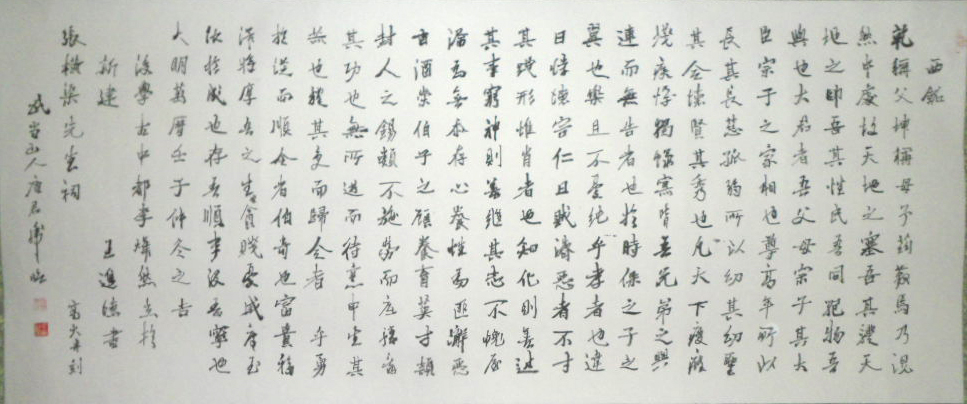 西銘
乾稱父坤稱母予茲藐焉乃混
然中處故天地之塞吾其體天
地之帥吾其性民吾同胞物吾
與也大君者吾父母宗子其大
臣宗子之家相也尊高年所以
長其長慈孤弱所以幼其幼聖
其合德賢其秀也凡天下疲癃
殘疾惸獨鰥寡皆吾兄弟之顛
連而無告者也於時保之子之
翼也樂且不憂純乎孝者也違
曰悖德害仁曰賊濟惡者不才
其踐形惟肖者也知化則善述
其事窮神則善繼其志不愧屋
漏為無忝存心養性為匪懈惡
旨酒崇伯子之顧養育英才穎
封人之錫類不弛勞而底豫舜
其功也無所逃而待烹申生其
恭也體其受而歸全者 乎勇
於從而順令者伯奇也富貴福
澤將厚吾之生貧賤憂戚庸玉
汝於成也存吾順事沒吾寧也
大明萬曆壬子仲冬之吉
後學古中都李燦然立於
新建 王進德書
張橫渠先生祠 刻
武當山人唐君